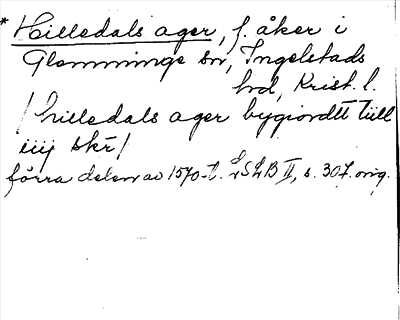 * Hilledals ager, f. åker i
Glemminge sn, Ingelstads
hd, Krist. l.
/ hilledals ager bygiordtt till
iiij skr /
förra delen av 1570-t. LSLB II, s. 307. orig.